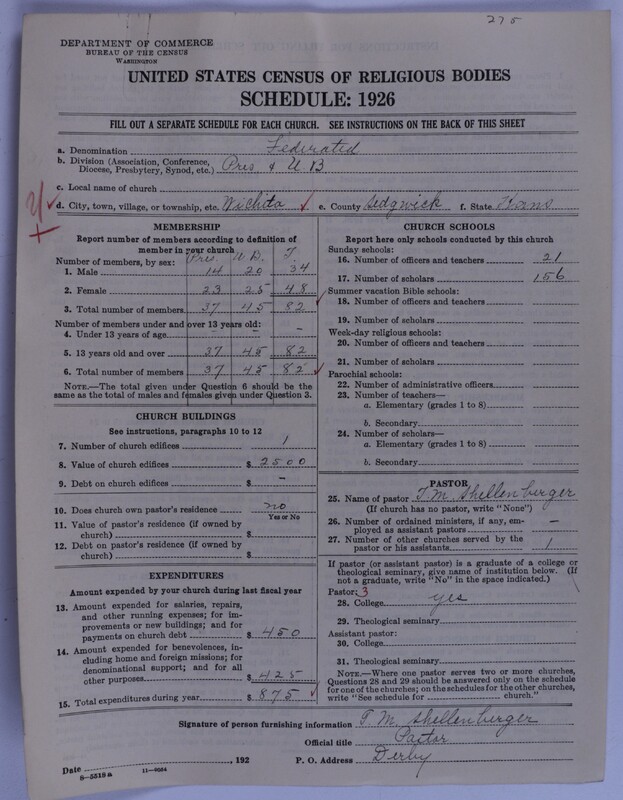 275
DEPARTMENT OF COMMERCE
BUREAU OF THE CENSUS
WASHINGTON
UNITED STATES CENSUS OF RELIGIOUS BODIES
SCHEDULE: 1926
FILL OUT A SEPARATE SCHEDULE FOR EACH CHURCH. SEE INSTRUCTIONS ON THE BACK OF THIS SHEET
a. Denomination Federated
b. Division (Association, Conference, Diocese, Presbytery, Synod, etc.) Pres & U B
c. Local name of church
d. City, town, village, or township, etc. Wichita e. County Sedgwick f. State Kans
MEMBERSHIP
Report number of members according to definition of member in your church
Pres. U. B. T
Number of members, by sex:
1. Male 14 20 34
2. Female 23 25 48
3. Total number of members 37 45 82
Number of members under and over 13 years old:
4. Under 13 years of age - - -
5. 13 years old and over 37 45 82
6. Total number of members 37 45 82
NOTE.—The total given under Question 6 should be same as the total of males and females given under Question 3.
CHURCH BUILDINGS
See instructions, paragraphs 10 to 12
7. Number of church edifices 1
8. Value of church edifices $ 2500
9. Debt on church edifices $ -
10. Does church own pastor's residence no
Yes or No
11. Value of pastor's residence (if owned by church) $
12. Debt on pastor's residence (if owned by church) $
EXPENDITURES
Amount expended by your church during last fiscal year
13. Amount expended for salaries, repairs, and other running expenses; for improvements or new buildings; and for payments on church debt $ 450
14. Amount expended for benevolences, including home and foreign missions; for denominational support; and for all other purposes $ 425
15. Total expenditures during year $ 875
CHURCH SCHOOLS
Report here only schools conducted by this church
Sunday schools:
16. Number of officers and teachers 21
17. Number of scholars 156
Summer vacation Bible schools:
18. Number of officers and teachers
19. Number of scholars
Week-day religious schools:
20. Number of officers and teachers
21. Number of scholars
Parochial schools:
22. Number of administrative officers
23. Number of teachers—
a. Elementary (grades 1 to 8)
b. Secondary
24. Number of scholars—
a. Elementary (grades 1 to 8)
b. Secondary
PASTOR
25. Name of pastor T. M. Shellenberger
(If church has no pastor, write "None")
26. Number of ordained ministers, if any, employed as assistant pastors -
27. Number of other churches served by the pastor or his assistants 1
If pastor (or assistant pastor) is a graduate of a college or theological seminary, give name of institution below. (If not a graduate, write "No" in the space indicated.)
Pastor: 3
28. College yes
29. Theological seminary
Assistant pastor:
30. College
31. Theological seminary
NOTE.—Where one pastor serves two or more churches, Questions 28 and 29 should be answered only on the schedule for one of the churches; on the schedules for the other churches, write "See schedule for ____ church."
Signature of person furnishing information T. M. Shellenberger
Official title Pastor
Date , 192 P. O. Address Derby
8-5518a 11-8664